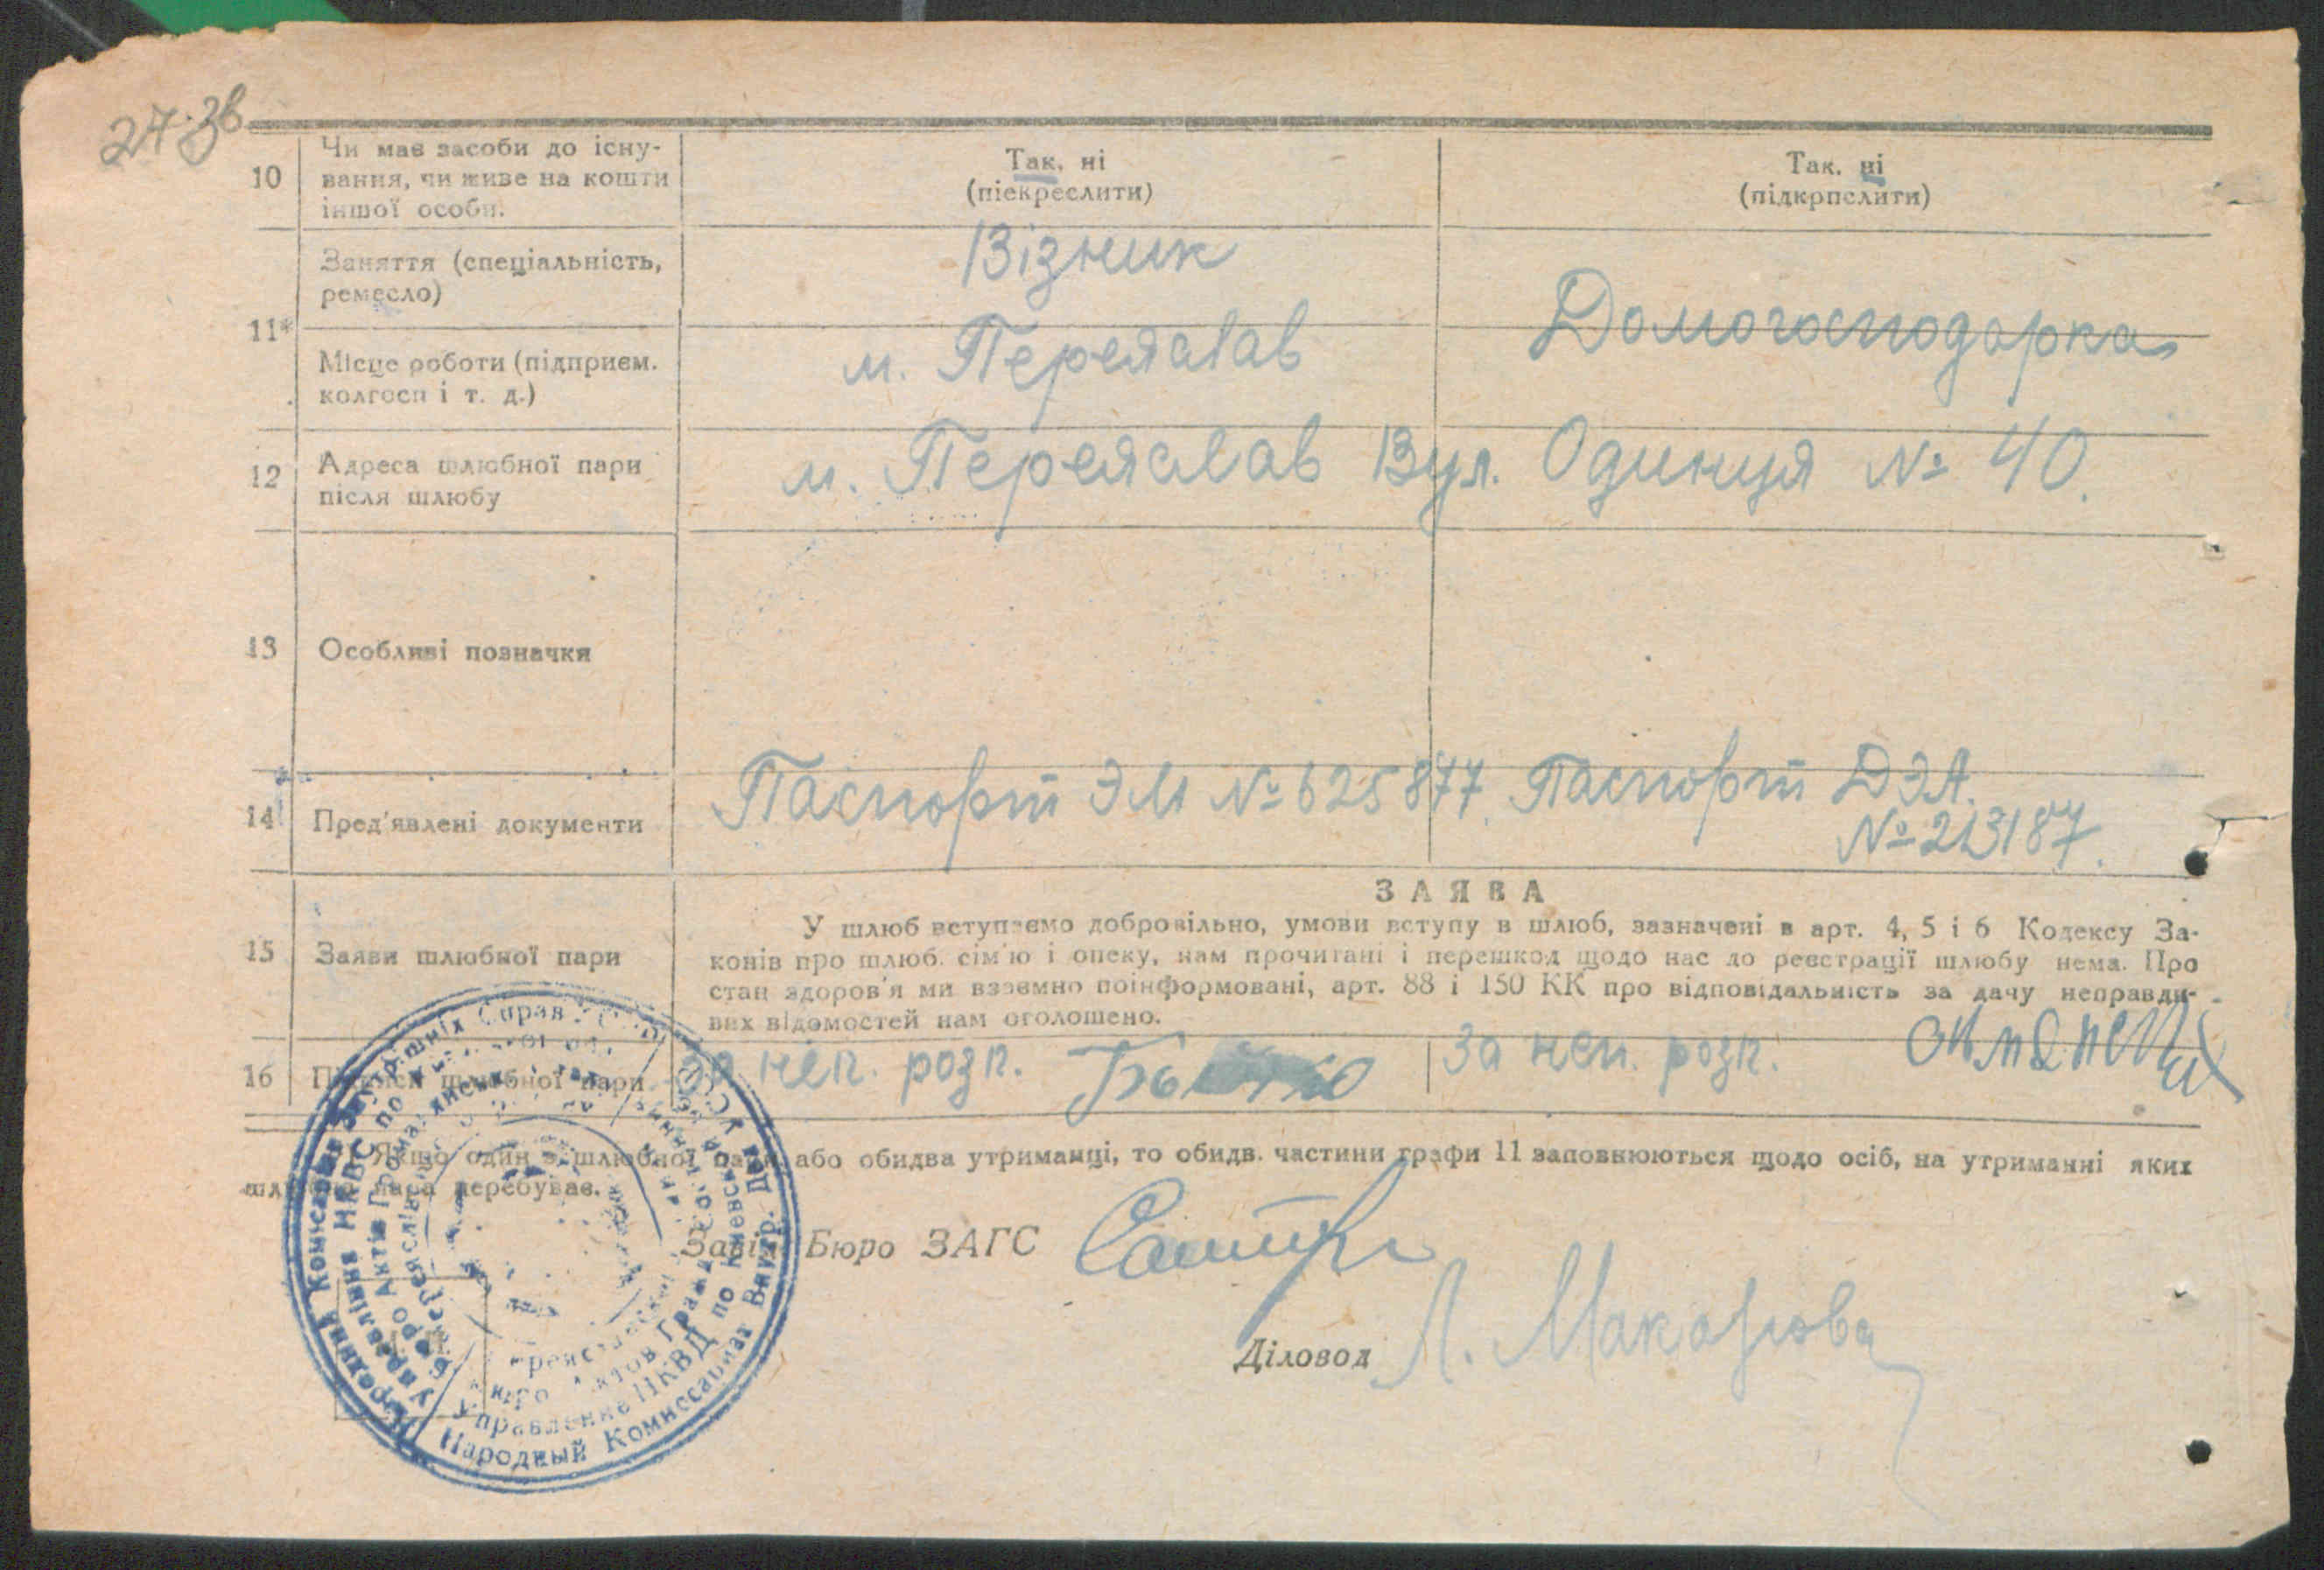 27.зв
10
Чи має засоби до існу-
вання, чи живе на кошти
іншої особи.
Так, ні
(піекреслити)
Так. ні
(підкрпслити)
11*
Заняття (спеціальність,
ремесло)
Візник
Домогосподарка
Місце роботи (підприєм.
колгосп і т. д.)
м. Переяслав
12
Адреса шлюбної пари
після шлюбу
м. Переяслав Вул. Одинця № 40.
13
Особливі позначки
14
Пред'явлені документи
Паспорт ЭМ № 625877.
Паспорт ДЭА.
№ 213187.
15
Заяви шлюбної пари
ЗАЯВА
У шлюб вступаємо добровільно, умови вступу в шлюб, зазначені в арт. 4, 5 і 6 Кодексу За-
конів про шлюб. сім'ю і опеку, нам прочитані і перешкод щодо нас до реєстрації шлюбу нема. Про
стан здоров'я ми взаємно поінформовані, арт. 88 і 150 КК про відповідальність за дачу неправди-
вих відомостей нам оголошено.
16
Підписи шлюбної пари
За неп. розп.
За неп. розп.
Якщо один з шлюбної пари або обидва утриманці, то обидв. частини графи 11 заповнюються щодо осіб, на утриманні яких
шлюбна пара перебуває.
Завід. Бюро ЗАГС
Діловод Л. Макарова
Народний Комісаріат Внутрішніх Справ УССР
Управління НКВС по
Бюро Актів Громад
Народный Комиссариат Внутр. Дел УССР
Управление НКВД по Киевской
Бюро Актов Гражд